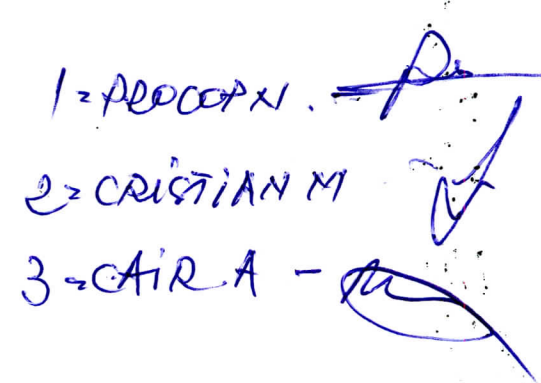 1 = PROCOP N. -
2 = CRISTIAN M
3 = CAIR A -